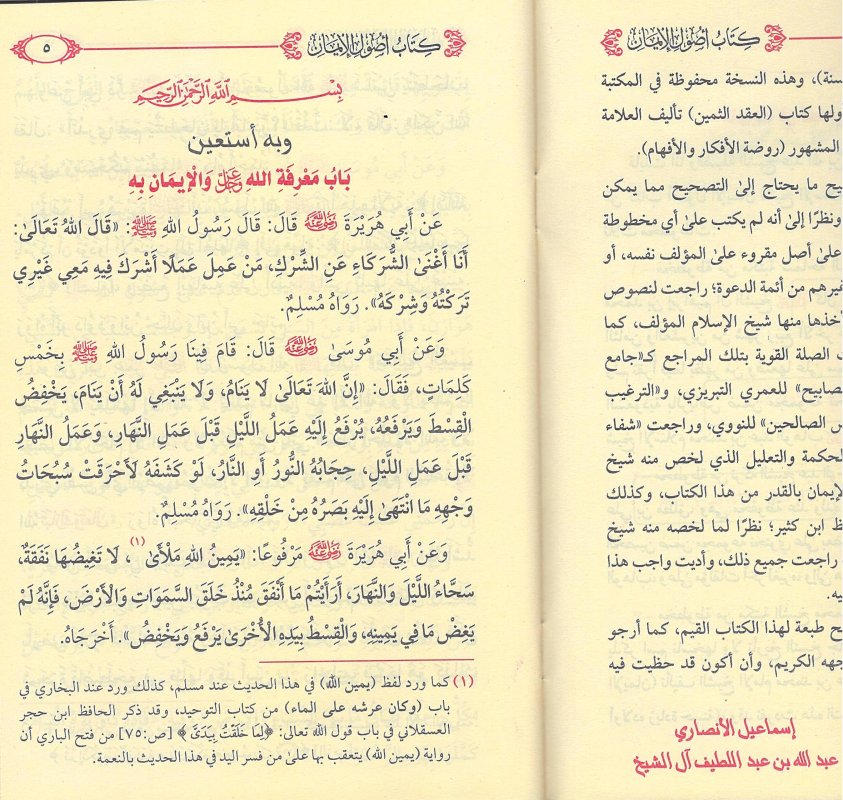 كِتَابُ أُصُولِ الإِيمَانِ
سنة)، وهذه النسخة محفوظة في المكتبة
ولها كتاب (العقد الثمين) تأليف العلامة
المشهور (روضة الأفكار والأفهام).
يح ما يحتاج إلى التصحيح مما يمكن
ونظرًا إلى أنه لم يكتب على أي مخطوطة
على أصل مقروء على المؤلف نفسه، أو
غيرهم من أئمة الدعوة؛ راجعت لنصوص
أخذها منها شيخ الإسلام المؤلف، كما
الصلة القوية بتلك المراجع كـ«جامع
صابيح» للعمري التبريزي، و«الترغيب
س الصالحين» للنووي، وراجعت «شفاء
لحكمة والتعليل الذي لخص منه شيخ
لإيمان بالقدر من هذا الكتاب، وكذلك
ظ ابن كثير؛ نظرًا لما لخصه منه شيخ
راجعت جميع ذلك، وأديت واجب هذا
يه.
ح طبعة لهذا الكتاب القيم، كما أرجو
جهه الكريم، وأن أكون قد حظيت فيه
إسماعيل الأنصاري
عبد الله بن عبد اللطيف آل الشيخ
كِتَابُ أُصُولِ الإِيمَانِ ٥
بِسْمِ اللَّهِ الرَّحْمَنِ الرَّحِيمِ
وبه أستعين
بَابُ مَعْرِفَةِ اللهِ عَزَّ وَجَلَّ وَالْإِيمَانِ بِهِ
عَنْ أَبِي هُرَيْرَةَ رَضِيَ اللهُ عَنْهُ قَالَ: قَالَ رَسُولُ اللهِ ﷺ: «قَالَ اللهُ تَعَالَى:
أَنَا أَغْنَى الشُّرَكَاءِ عَنِ الشِّرْكِ، مَنْ عَمِلَ عَمَلًا أَشْرَكَ فِيهِ مَعِي غَيْرِي
تَرَكْتُهُ وَشِرْكَهُ». رَوَاهُ مُسْلِمٌ.
وَعَنْ أَبِي مُوسَى رَضِيَ اللهُ عَنْهُ قَالَ: قَامَ فِينَا رَسُولُ اللهِ ﷺ بِخَمْسِ
كَلِمَاتٍ، فَقَالَ: «إِنَّ اللهَ تَعَالَى لَا يَنَامُ، وَلَا يَنْبَغِي لَهُ أَنْ يَنَامَ، يَخْفِضُ
الْقِسْطَ وَيَرْفَعُهُ، يُرْفَعُ إِلَيْهِ عَمَلُ اللَّيْلِ قَبْلَ عَمَلِ النَّهَارِ، وَعَمَلُ النَّهَارِ
قَبْلَ عَمَلِ اللَّيْلِ، حِجَابُهُ النُّورُ أَوِ النَّارُ، لَوْ كَشَفَهُ لَأَحْرَقَتْ سُبُحَاتُ
وَجْهِهِ مَا انْتَهَى إِلَيْهِ بَصَرُهُ مِنْ خَلْقِهِ». رَوَاهُ مُسْلِمٌ.
وَعَنْ أَبِي هُرَيْرَةَ رَضِيَ اللهُ عَنْهُ مَرْفُوعًا: «يَمِينُ اللهِ مَلْأَى(١)، لَا تَغِيضُهَا نَفَقَةٌ،
سَحَّاءُ اللَّيْلَ وَالنَّهَارَ، أَرَأَيْتُمْ مَا أَنْفَقَ مُنْذُ خَلَقَ السَّمَوَاتِ وَالْأَرْضَ، فَإِنَّهُ لَمْ
يَغِضْ مَا فِي يَمِينِهِ، وَالْقِسْطُ بِيَدِهِ الْأُخْرَى يَرْفَعُ وَيَخْفِضُ». أَخْرَجَاهُ.
(١) كما ورد لفظ (يمين الله) في هذا الحديث عند مسلم، كذلك ورد عند البخاري في
باب (وكان عرشه على الماء) من كتاب التوحيد، وقد ذكر الحافظ ابن حجر
العسقلاني في باب قول الله تعالى: ﴿لِمَا خَلَقْتُ بِيَدَيَّ﴾ [ص:٧٥] من فتح الباري أن
رواية (يمين الله) يتعقب بها على من فسر اليد في هذا الحديث بالنعمة.